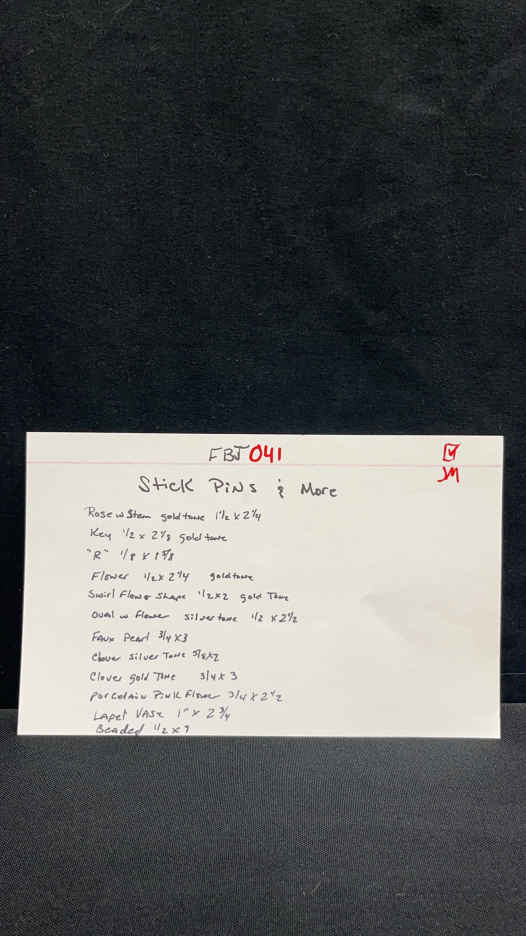 FBJ 041
JM
Stick Pins & More
Rose w Stem gold tone 1 1/2 x 2 1/4
Key 1/2 x 2 1/8 gold tone
"R" 1/8 x 1 5/8
Flower 1/2 x 2 1/4 gold tone
Swirl Flower Shape 1/2 x 2 gold Tone
Oval w Flower silver tone 1/2 x 2 1/2
Faux Pearl 3/4 x 3
Clover Silver Tone 5/8 x 2
Clover gold Tone 3/4 x 3
Porcelain Pink Flower 3/4 x 2 1/2
Lapel Vase 1" x 2 3/4
Beaded 1/2 x